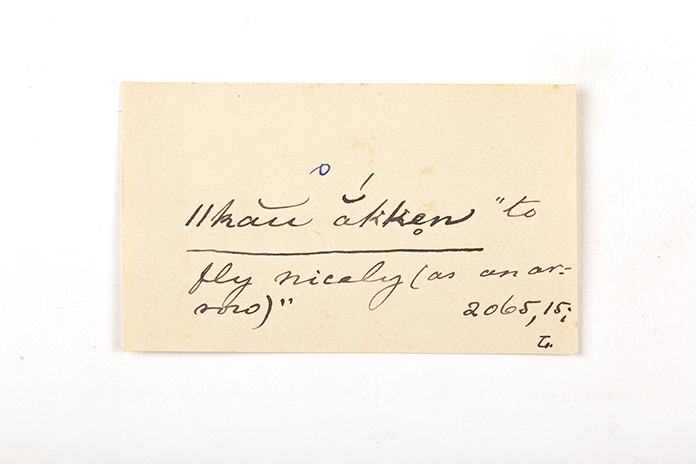 o
ǁkău ắkkẹn "to
fly nicely (as an ar-
row)" 2065,15;
L.